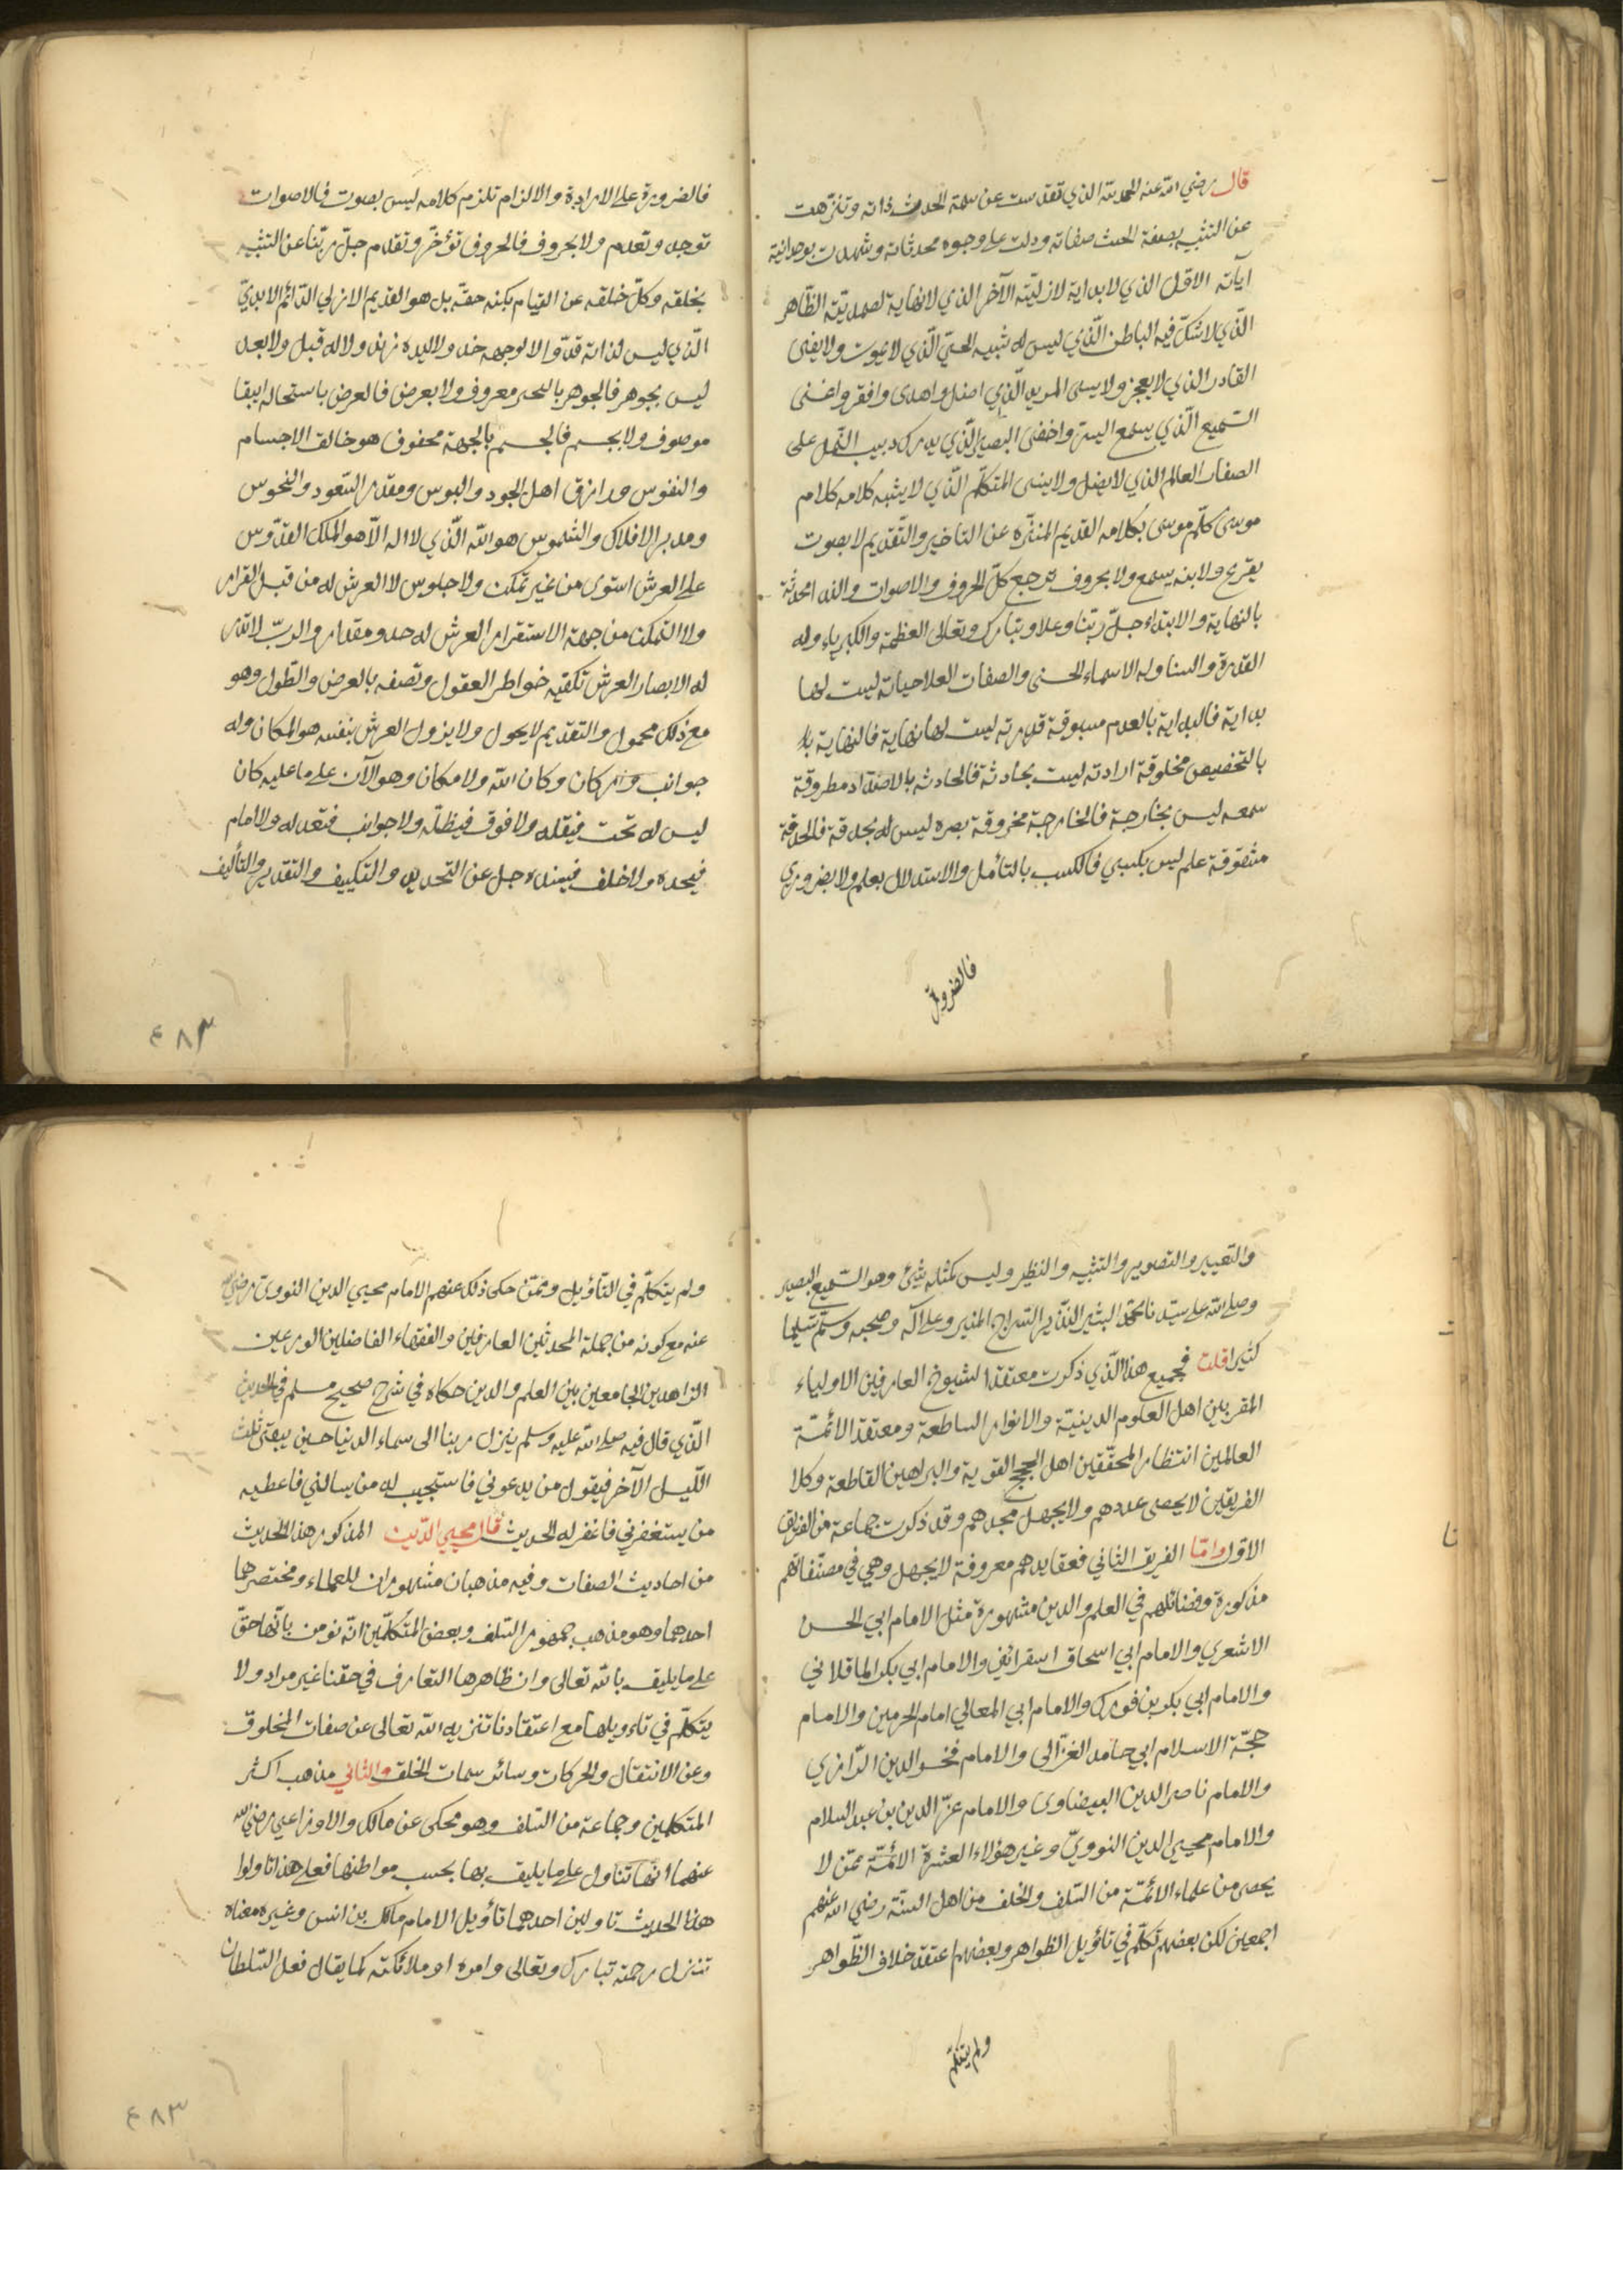 قال رضي الله عنه الحمد لله الذي تقدست عن سمة الحدث ذاته وتنزهت
عن التشبيه بصفة الحدث صفاته ودلت على وجوه محدثاته وشهدت بوحدانية
آياته الاول الذي لا بداية لازليته الآخر الذي لا نهاية لصمديته الظاهر
الذي لا شك فيه الباطن الذي ليس له شبيه الحي الذي لا يموت ولا يفنى
القادر الذي لا يعجز ولا يسى المريد الذي اضل واهدى وافقر واغنى
السميع الذي يسمع السر واخفى البصير الذي يدرك دبيب النمل على
الصفا العالم الذي لا يضل ولا ينسى المتكلم الذي لا يشبه كلامه كلام
موسى كلم موسى بكلامه القديم المنزه عن التاخير والتقديم لا بصوت
يقرع ولا بنه يسمع ولا بحروف ترجع كل الحروف والاصوات والندا محدثة
بالنهاية والابتداء جل ربنا وعلا وتبارك وتعالى العظمة والكبرياء وله
القدرة والسنا وله الاسماء الحسنى والصفات العلا حياته ليست لها
بداية فالبداية بالعدم مسبوقة قدرته ليست لها نهاية فالنهاية با
بالتخصيص مخلوقة ارادته ليست بحادثة فالحادثه بالاضداد مطروقة
سمعه ليس بخارجة فالخارجة مخروقة بصره ليس له بحدقة فالحدقة
مشقوقة علم ليس بكسبي فالكسب بالتأمل والاستدلال يعلم ولا بضروري
فالضرورة
فالضرورة على الارادة والالزام تلزم كلامه ليس بصوت فالاصوات
توجد وتعدم ولا بحروف فالحروف تؤخر وتقدم جل ربنا عن التشبيه
بخلقه وكل خلقه عن القيام بكنه حقه بل هو القديم الازلي الدائم الابدي
الذي ليس لذاته قد ولا لوجهه خد ولا ليده زند ولا له قبل ولا بعد
ليس بجوهر فالجوهر بالتحيز معروف ولا بعرض فالعرض باستحاله ابقا
موصوف ولا بجسم فالجسم بالجهة محفوف هو خالق الاجسام
والنفوس ورازق اهل الجود والبوس ومقدر السعود والنحوس
ومدبر الافلاك والشموس هو الله الذي لا اله الا هو الملك القدوس
على العرش استوى من غير تمكن ولا جلوس لا العرش له من قبل القرار
ولا التمكن من جهة الاستقرار العرش له حد ومقدار والرب لا تدر
له الابصار العرش تكفيه خواطر العقول وتصفه بالعرض والطول وهو
مع ذلك محمول والتقديم لا يحول ولا يزول العرش بنفسه هو المكان وله
جوانب واركان وكان الله ولا مكان وهو الآن على ما عليه كان
ليس له تحت فيقله ولا فوق فيظله ولا جوانب فتعدله ولا امام
فيحده ولا خلف فيسنده جل عن التحديد والتكييف والتقدير والتأليف
٤٨٣
والتغيير والتصوير والتشبيه والنظير وليس كمثله شئ وهو السميع البصير
وصلى الله على سيدنا محمد البشير النذير السراج المنير وعلى آله وصحبه وسلم تسليما
كثيرا قلت فجميع هذا الذي ذكرت معتقد الشيوخ العارفين الاولياء
المقربين اهل العلوم الدينية والانوار الساطعة ومعتقد الائمة
العالمين انتظار المحققين اهل الحجج القوية والبراهين القاطعة وكلا
الفريقين لا يحصى عددهم ولا يجهل مجدهم وقد ذكرت جماعة من الفريق
الاول واما الفريق الثاني فعقايدهم معروفة لا يجهل وهي في مصنفاتهم
مذكورة وفضائلهم في العلم والدين مشهورة مثل الامام ابي الحسن
الاشعري والامام ابي اسحاق اسفرائني والامام ابي بكر الماقلاني
والامام ابي بكر بن فورك والامام ابي المعالي امام الحرمين والامام
حجة الاسلام ابي حامد الغزالى والامام فخر الدين الرازي
والامام ناصر الدين البيضاوى والامام عز الدين بن عبد السلام
والامام محيي الدين النووي وغير هؤلاء العشرة الائمة ممن لا
يحصى من علماء الائمة من السلف والخلف من اهل السنة رضي الله عنهم
اجمعين لكن بعضهم تكلم في تأويل الظواهر وبعضهم اعتقد خلاف الظواهر
ولم يتكلم
ولم يتكلم في التأويل وممن حكى ذلك عنهم الامام محيي الدين النووى رضي الله
عنه مع كونه من جملة المحدثين العارفين والفقهاء الفاضلين الورعين
الزاهدين الجامعين بين العلم والدين حكاه في شرح صحيح مسلم في الحديث
الذي قال فيه صلى الله عليه وسلم ينزل ربنا الى سماء الدنيا حين يبقى ثلث
الليل الآخر فيقول من يدعوني فاستجيب له من يسالني فاعطيه
من يستغفرني فاغفر له الحديث قال محيي الدين المذكور هذا الحديث
من احاديث الصفات وفيه مذهبان مشهوران للعلماء ومختصرهما
احدهما وهو مذهب جمهور السلف وبعض المتكلمين انه نومن بانها حق
على ما يليق بالله تعالى وان ظاهرها التعارف في حقنا غير مراد ولا
يتكلم في تاويلها مع اعتقادنا تنزيه الله تعالى عن صفات المخلوق
وعن الانتقال والحركات وسائر سمات الخلق والثاني مذهب اكثر
المتكلمين وجماعة من السلف وهو محكى عن مالك والاوزاعي رضي الله
عنهما انها تتاول على ما يليق بها بحسب مواطنها فعلى هذا تاولوا
هذا الحديث تاولين احدهما تأويل الامام مالك بن انس وغيره معناه
تنزل رحمته تبارك وتعالى وامره او ملائكته كما يقال فعل السلطان
٤٨٣